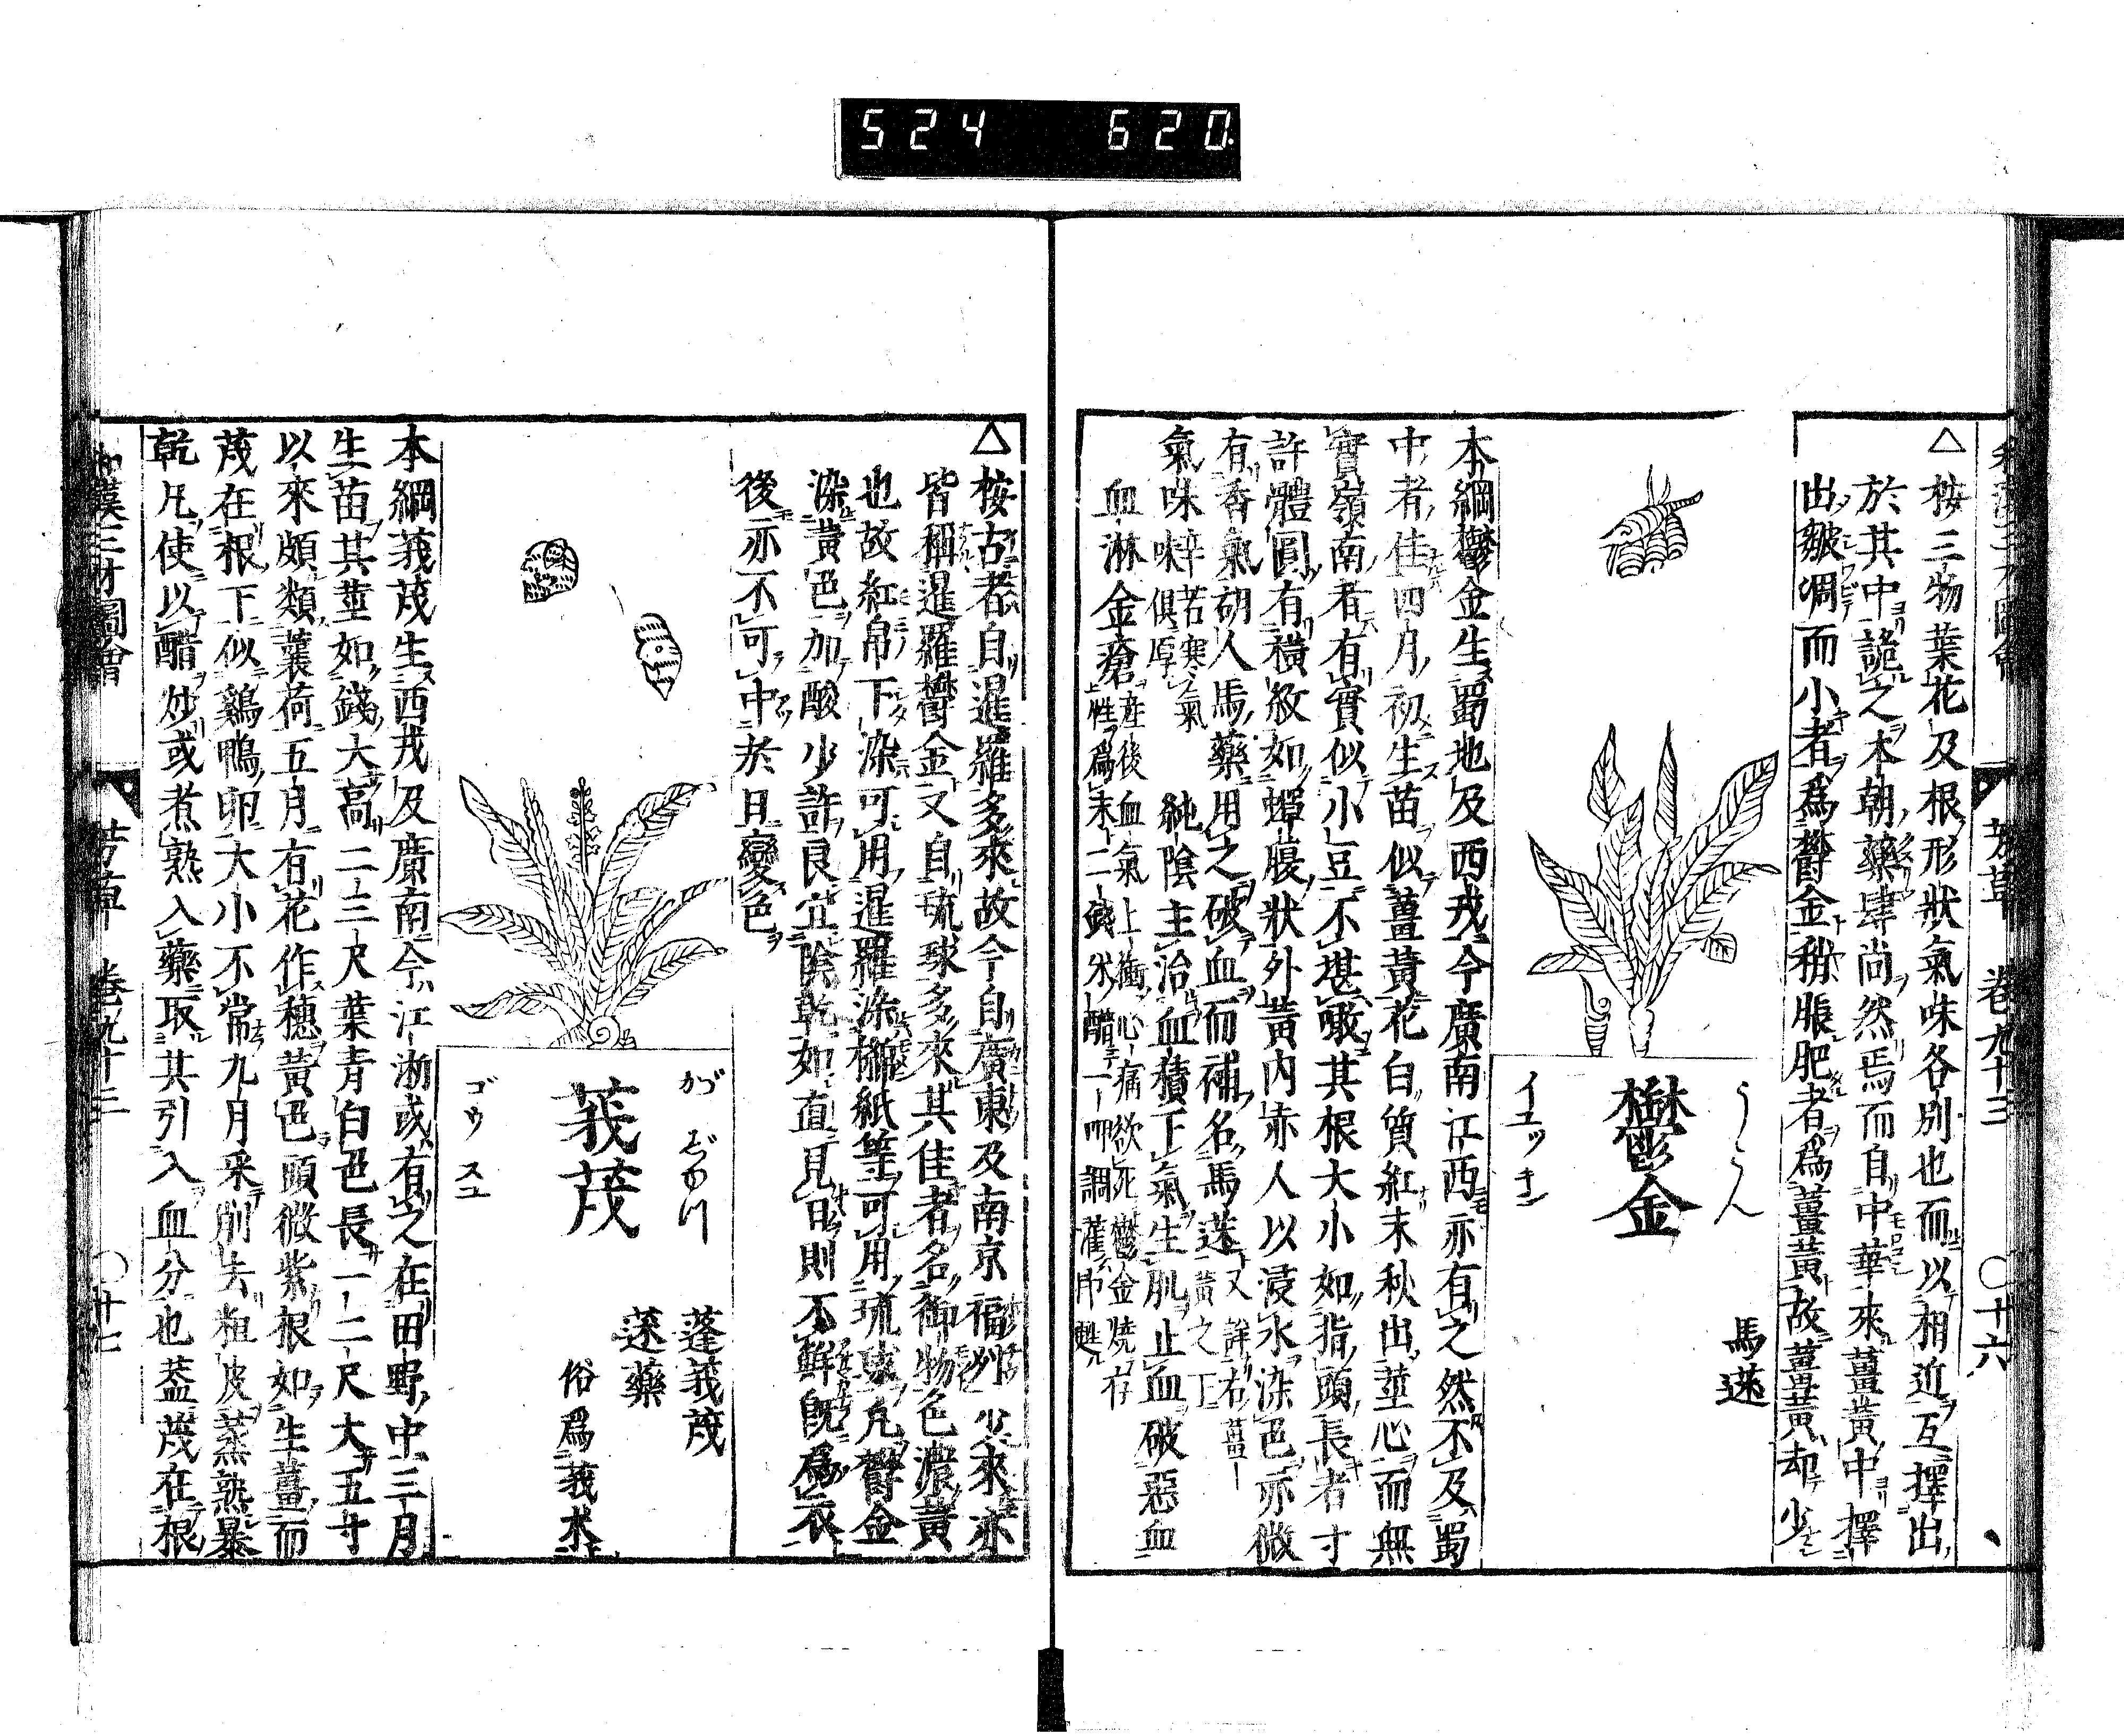 524 620
和漢三才圖會 芳草 卷九十三 〇十六
△ 按三物葉花及根形狀氣味各別也而以相近互擇出
於其中詭之本朝藥肆尚然焉而自中華來薑黃中擇
出皺凋而小者爲鬱金稍脹肥者爲薑黃故薑黃却少
うこん
鬱金
イユッ キン
馬蒁
本綱鬱金生蜀地及西戎今廣南江西亦有之然不及蜀
中者佳四月初生苗似薑黃花白質紅末秋出莖心而無
實嶺南者有實似小豆不堪噉其根大小如指頭長者寸
許體圓有橫紋如蟬腹狀外黃内赤人以浸水染色亦微
有香氣胡人馬藥用之破血而補名馬蒁
氣味辛苦寒氣味俱厚 純陰主治血積下氣生肌止血破惡血
血淋金瘡產後血氣上衝心痛欲死鬱金燒存
性爲末二錢米醋一呷調灌即甦
△ 按古者自暹羅多來故今自廣東及南京福州少來亦
皆稱暹羅鬱金又自琉球多來其佳者名御物色濃黃
也故紅帛下染可用暹羅染櫛紙等可用琉球凡鬱金
染黃色加酸少許良宜陰乾如直見日則不鮮既爲衣
後亦不可中於日變色
がじゆつ
莪茂
ゴウ スユ
蓬莪茂
蒁藥
俗爲莪朮
本綱莪茂生西戎及廣南今江淅或有之在田野中三月
生苗其莖如錢大高二三尺葉青白色長一二尺大五寸
以來頗類蘘荷五月有花作穗黃色頭微紫根如生薑而
茂在根下似鷄鴨卵大小不常九月采削去粗皮蒸熟暴
乾凡使以醋炒或煮熟入藥取其引入血分也蓋茂在根
和漢三才圖會 芳草 卷九十三 〇十七